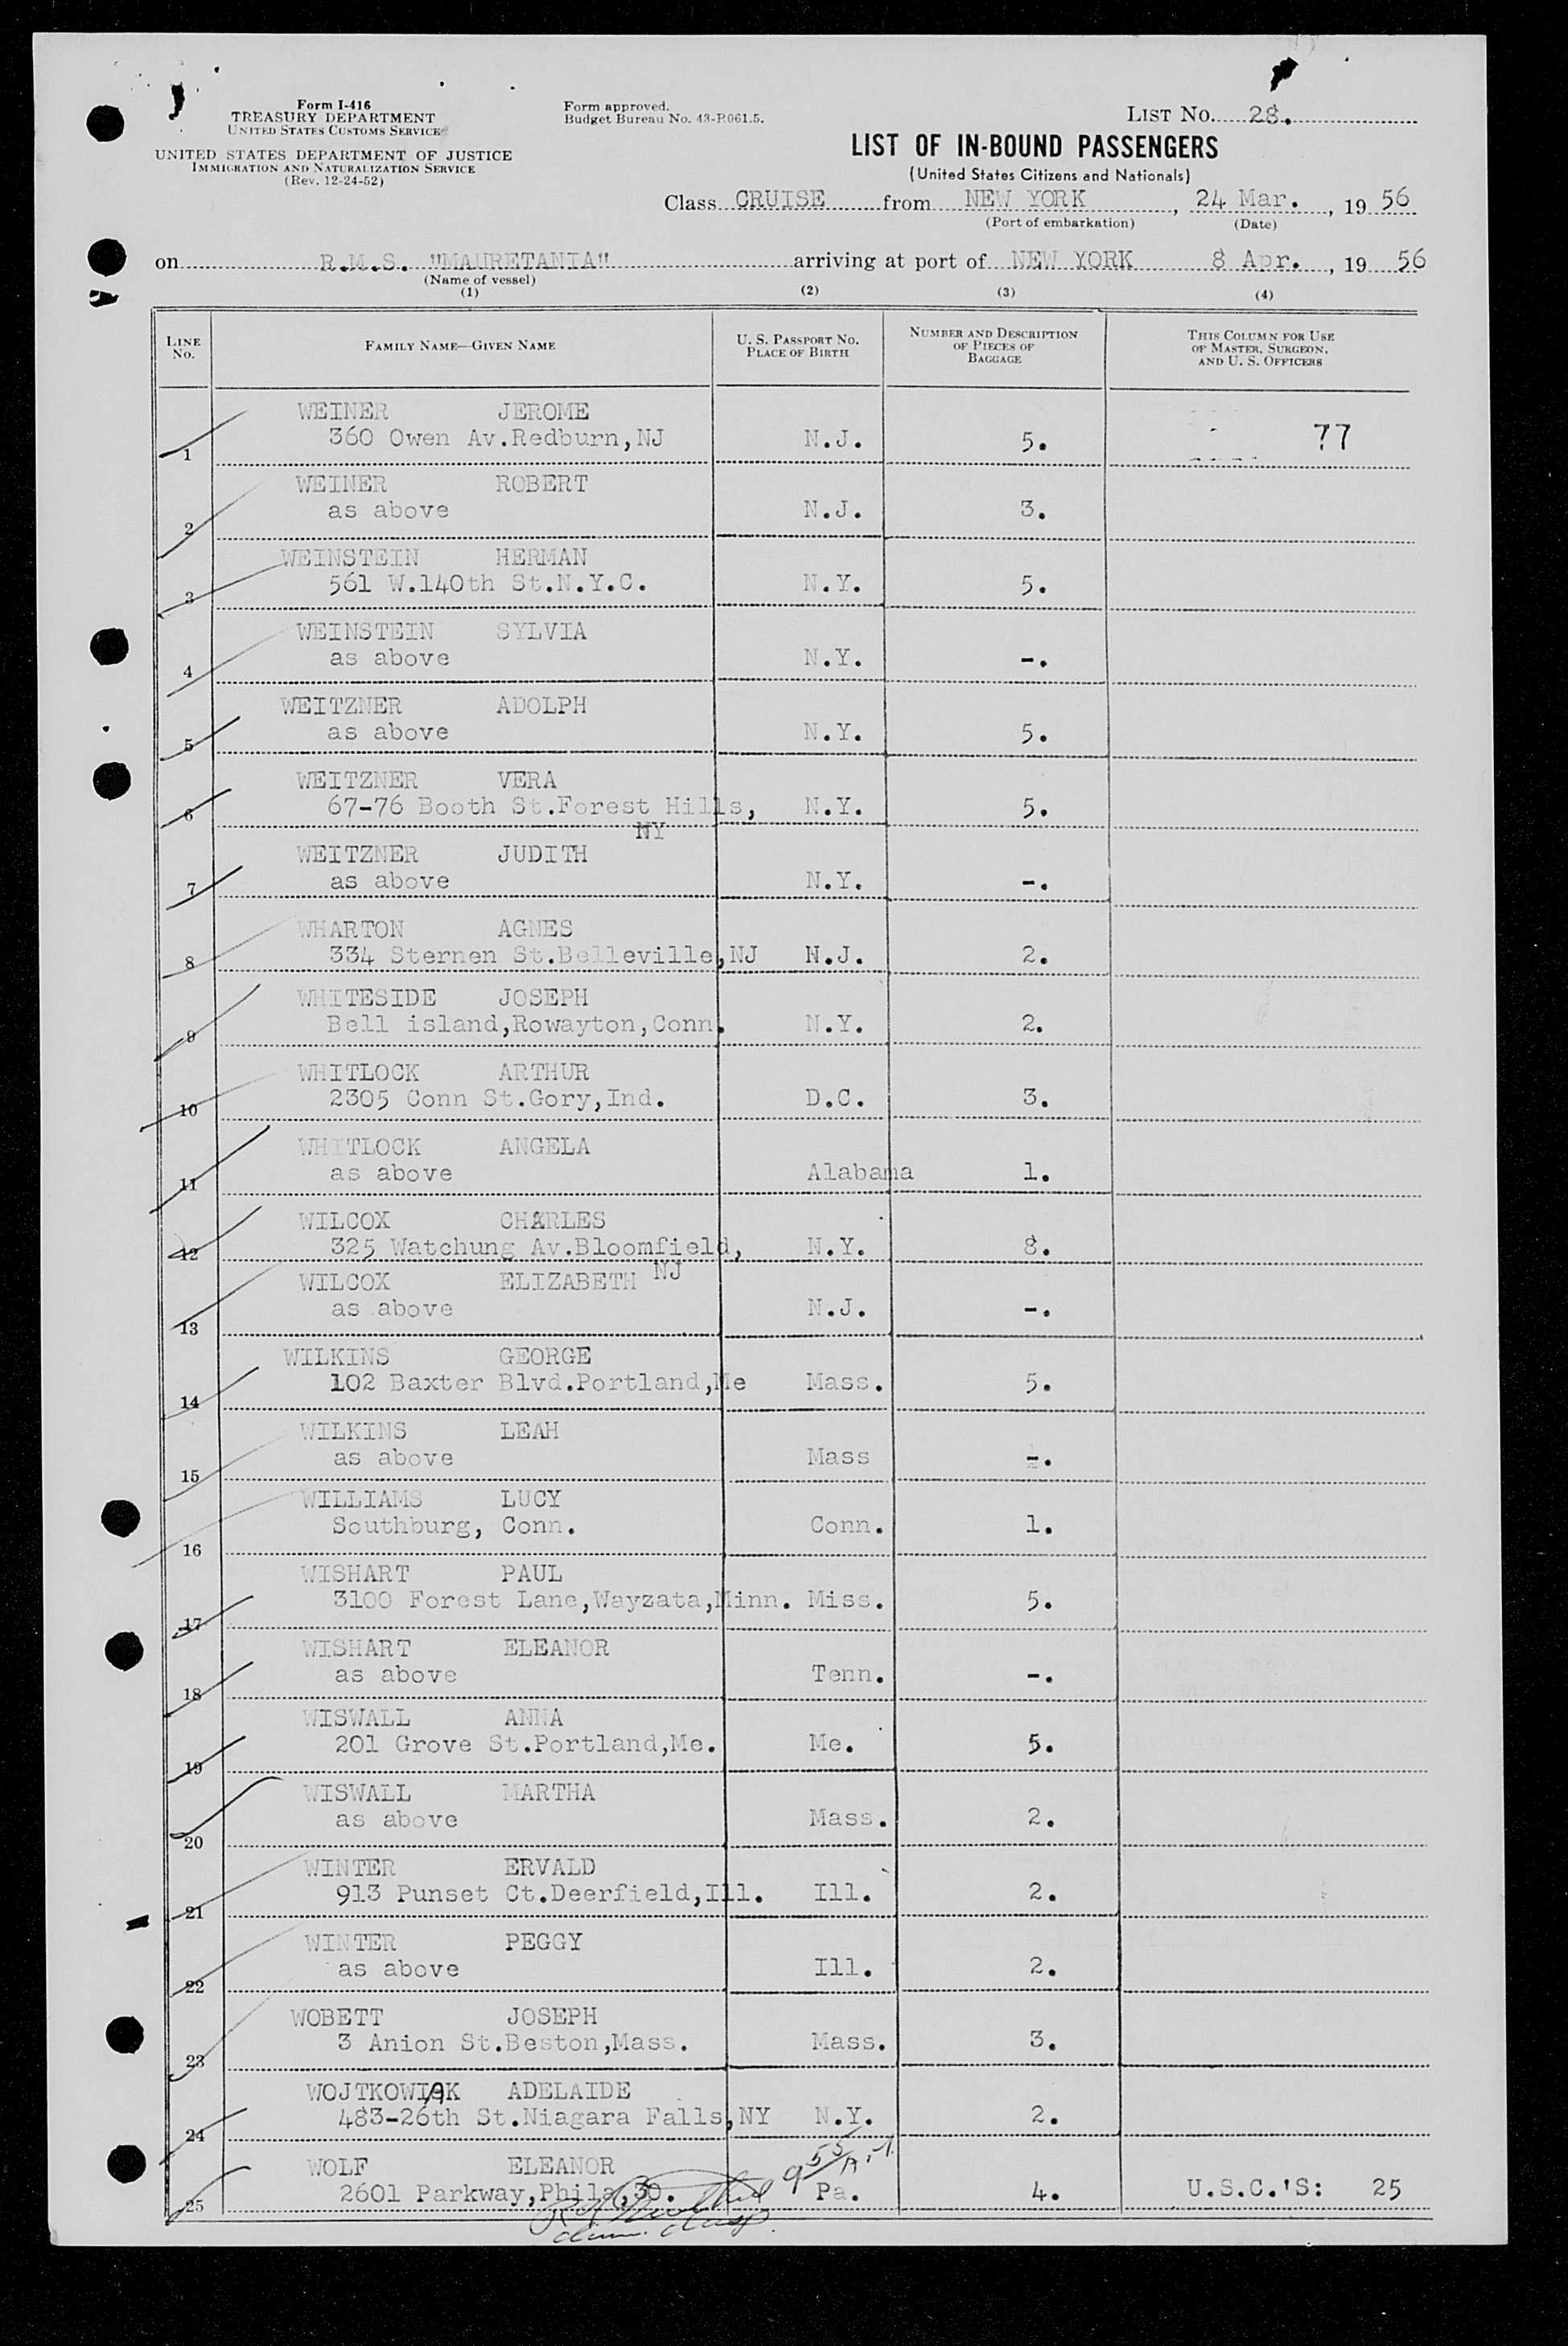 Form I-416
TREASURY DEPARTMENT
UNITED STATES CUSTOMS SERVICE
UNITED STATES DEPARTMENT OF JUSTICE
IMMIGRATION AND NATURALIZATION SERVICE
(Rev. 12-24-52)
Form approved.
Budget Bureau No. 43-R061.5.
LIST No. 28.
LIST OF IN-BOUND PASSENGERS
(United States Citizens and Nationals)
Class CRUISE from NEW YORK, 24 Mar., 19 56
(Port of embarkation) (Date)
on R.M.S. "MAURETANIA" arriving at port of NEW YORK 8 Apr., 19 56
(Name of vessel)
(1) (2) (3) (4)
LINE No. FAMILY NAME—GIVEN NAME U. S. PASSPORT NO. PLACE OF BIRTH NUMBER AND DESCRIPTION OF PIECES OF BAGGAGE THIS COLUMN FOR USE OF MASTER, SURGEON, AND U. S. OFFICERS
WEINER JEROME
1 360 Owen Av.Redburn,NJ N.J. 5. 77
WEINER ROBERT
2 as above N.J. 3.
WEINSTEIN HERMAN
3 561 W.140th St.N.Y.C. N.Y. 5.
WEINSTEIN SYLVIA
4 as above N.Y. -.
WEITZNER ADOLPH
5 as above N.Y. 5.
WEITZNER VERA
6 67-76 Booth St.Forest Hills, N.Y. 5.
NY
WEITZNER JUDITH
7 as above N.Y. -.
WHARTON AGNES
8 334 Sternen St.Belleville,NJ N.J. 2.
WHITESIDE JOSEPH
9 Bell island,Rowayton,Conn. N.Y. 2.
WHITLOCK ARTHUR
10 2305 Conn St.Gory,Ind. D.C. 3.
WHITLOCK ANGELA
11 as above Alabama 1.
WILCOX CHARLES
12 325 Watchung Av.Bloomfield, N.Y. 8.
NJ
WILCOX ELIZABETH
13 as above N.J. -.
WILKINS GEORGE
14 102 Baxter Blvd.Portland,Me Mass. 5.
WILKINS LEAH
15 as above Mass -.
WILLIAMS LUCY
16 Southburg, Conn. Conn. 1.
WISHART PAUL
17 3100 Forest Lane,Wayzata,Minn. Miss. 5.
WISHART ELEANOR
18 as above Tenn. -.
WISWALL ANNA
19 201 Grove St.Portland,Me. Me. 5.
WISWALL MARTHA
20 as above Mass. 2.
WINTER ERVALD
21 913 Punset Ct.Deerfield,Ill. Ill. 2.
WINTER PEGGY
22 as above Ill. 2.
WOBETT JOSEPH
23 3 Anion St.Beston,Mass. Mass. 3.
WOJTKOWIAK ADELAIDE
24 483-26th St.Niagara Falls,NY N.Y. 2.
WOLF ELEANOR
25 2601 Parkway,Phila,30. Pa. 4. U.S.C.'S: 25